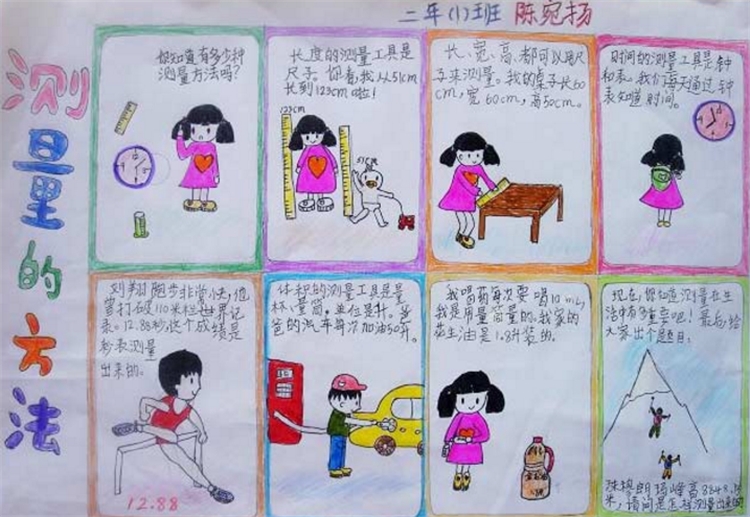 二年(1)班 陈宛扬
测量的方法
你知道有多少种
测量方法吗?
长度的测量工具是
尺子。你看,我从51cm
长到123cm啦!
123cm
51cm
长、宽、高、都可以用尺
子来测量。我的桌子长60
cm,宽60cm,高50cm。
时间的测量工具是钟
和表。我们每天通过钟
表知道时间。
刘翔跑步非常快,他
曾打破110米栏世界记
录。12.88秒,这个成绩是
秒表测量
出来的。
12.88
体积的测量工具是量
杯、量筒,单位是升。爸
爸的汽车每次加油50升。
我喝药每次要喝10mL,
我是用量筒量的。我家的
花生油是1.8升装的。
现在,你知道测量在生
活中有多重要吧!最后,给
大家出个题目:
珠穆朗玛峰高8848.
米,请问是怎样测量出来的